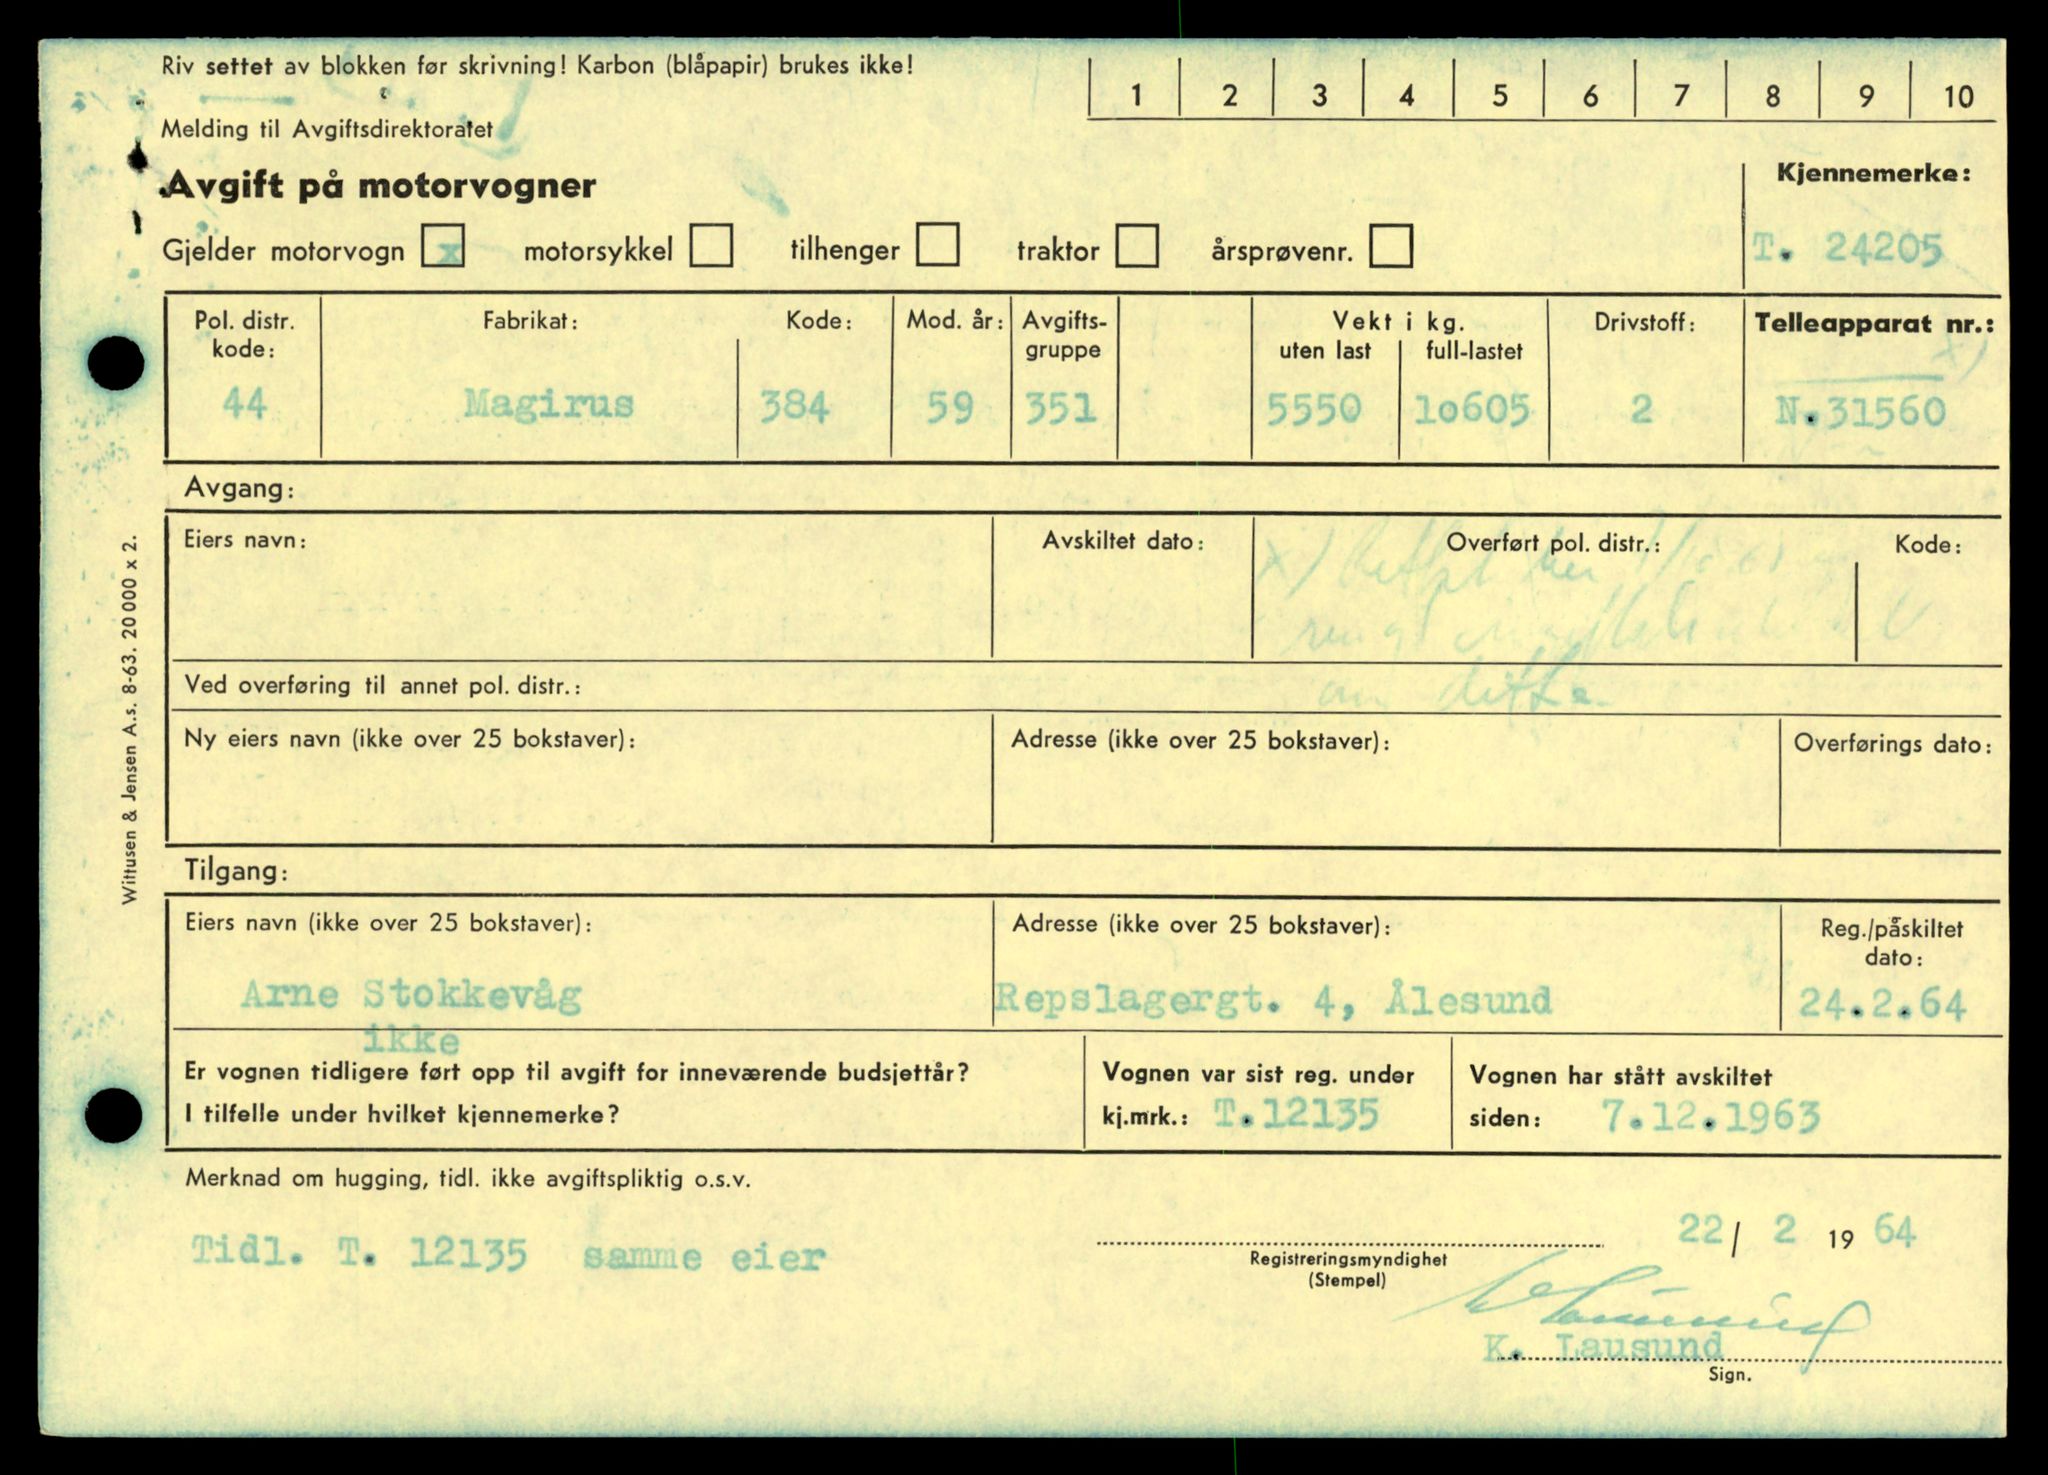 Riv settet av blokken før skrivning! Karbon (blåpapir) brukes ikke!
1 2 3 4 5 6 7 8 9 10
Melding til Avgiftsdirektoratet
Avgift på motorvogner
Kjennemerke:
Gjelder motorvogn x motorsykkel tilhenger traktor årsprøvenr.
T. 24205
Pol. distr. kode:
Fabrikat:
Kode:
Mod. år:
Avgifts-
gruppe
Vekt i kg.
uten last full-lastet
Drivstoff:
Telleapparat nr.:
x)
44 Magirus 384 59 351 5550 10605 2 N.31560
Avgang:
Eiers navn:
Avskiltet dato:
Overført pol. distr.:
Kode:
x)
om dette
Ved overføring til annet pol. distr.:
Ny eiers navn (ikke over 25 bokstaver):
Adresse (ikke over 25 bokstaver):
Overførings dato:
Tilgang:
Eiers navn (ikke over 25 bokstaver):
Adresse (ikke over 25 bokstaver):
Reg./påskiltet
dato:
Arne Stokkevåg
Repslagergt. 4, Ålesund
24.2.64
ikke
Er vognen tidligere ført opp til avgift for inneværende budsjettår?
I tilfelle under hvilket kjennemerke?
Vognen var sist reg. under
kj.mrk.: T.12135
Vognen har stått avskiltet
siden: 7.12.1963
Merknad om hugging, tidl. ikke avgiftspliktig o.s.v.
Tidl. T. 12135 samme eier
22 / 2 19 64
Registreringsmyndighet
(Stempel)
K. Lausund
Sign.
Wittusen & Jensen A.s. 8-63. 20 000 x 2.